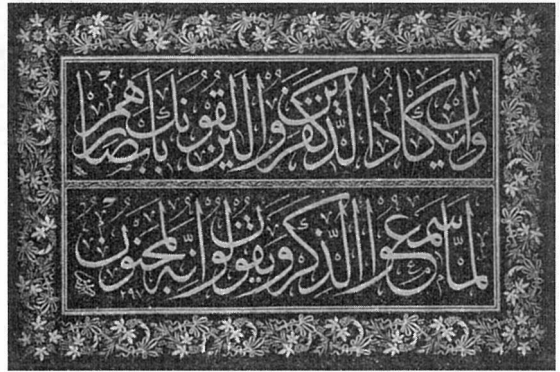 وَإِنْ يَكَادُ الَّذِينَ كَفَرُوا لَيُزْلِقُونَكَ بِأَبْصَارِهِمْ
لَمَّا سَمِعُوا الذِّكْرَ وَيَقُولُونَ إِنَّهُ لَمَجْنُونٌ